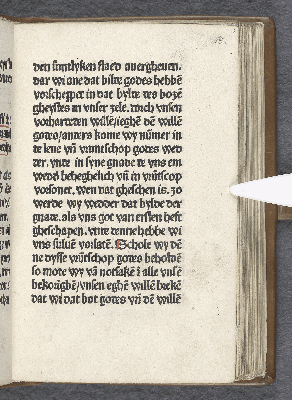 den suntlyken staed auergheuen.
dar wi ane dat bilte godes hebbē
vorscheppet in dat bylte des bozē
gheystes in vnser zele. mich vnsen
vorharden willē/ieghē dē willē
godes/anders kome wy nūmer in
te leuē vn̄ vrūtschop godes wed
der. vnde in syne gnade te vns em
wedd beheghelich vn̄ in vrūtscop
vorsonet. wen dat gheschen is. zo
werde wy wedder dat bylde der
gnade. als vns got van ersten heft
gheschapen. vnde denne hebbe wi
vns suluē vorlatē. Schole wy dē
ne dysse vrūtschop godes beholdē
so mote wy vā notsakē ī alle vnsē
bekorīghē/vnsen eghē willē brekē
dat wi dat bot godes vn̄ dē willē